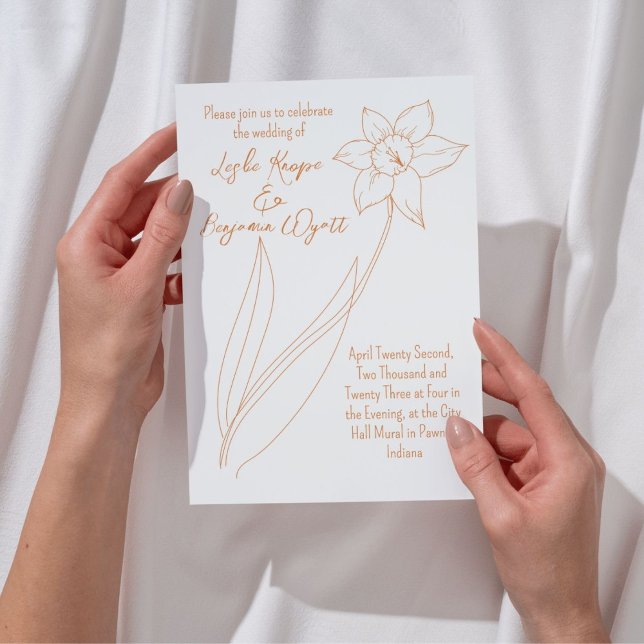 Please join us to celebrate
the wedding of
Leslie Knope
&
Benjamin Wyatt
April Twenty Second,
Two Thousand and
Twenty Three at Four in
the Evening, at the City
Hall Mural in
Indiana